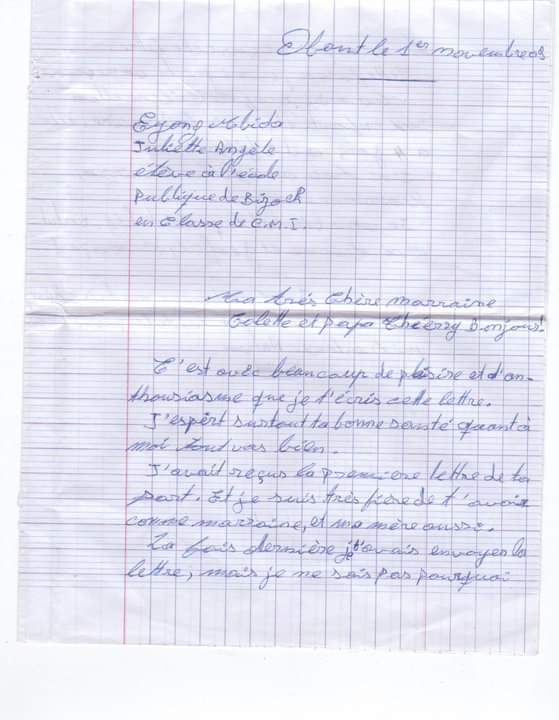 Obout le 1er novembre 03
Eyong Mbida
Juliette Angèle
élève à l'école
Publique de Bizock
en Classe de C.M.I.
Ma très Chère marraine
Colette et papa Thierry Bonjour!
C'est avec beaucoup de plaisire et d'en-
thousiasme que je t'écris cette lettre.
J'espèrt surtout ta bonne santé quant à
moi tout vas bien.
J'avait reçus la première lettre de ta
part. Et je suis très fière de t'avoir
comme marraine, et ma mère aussi.
La fois dernière je t'avais envoyer la
lettre, mais je ne sais pas pourquoi